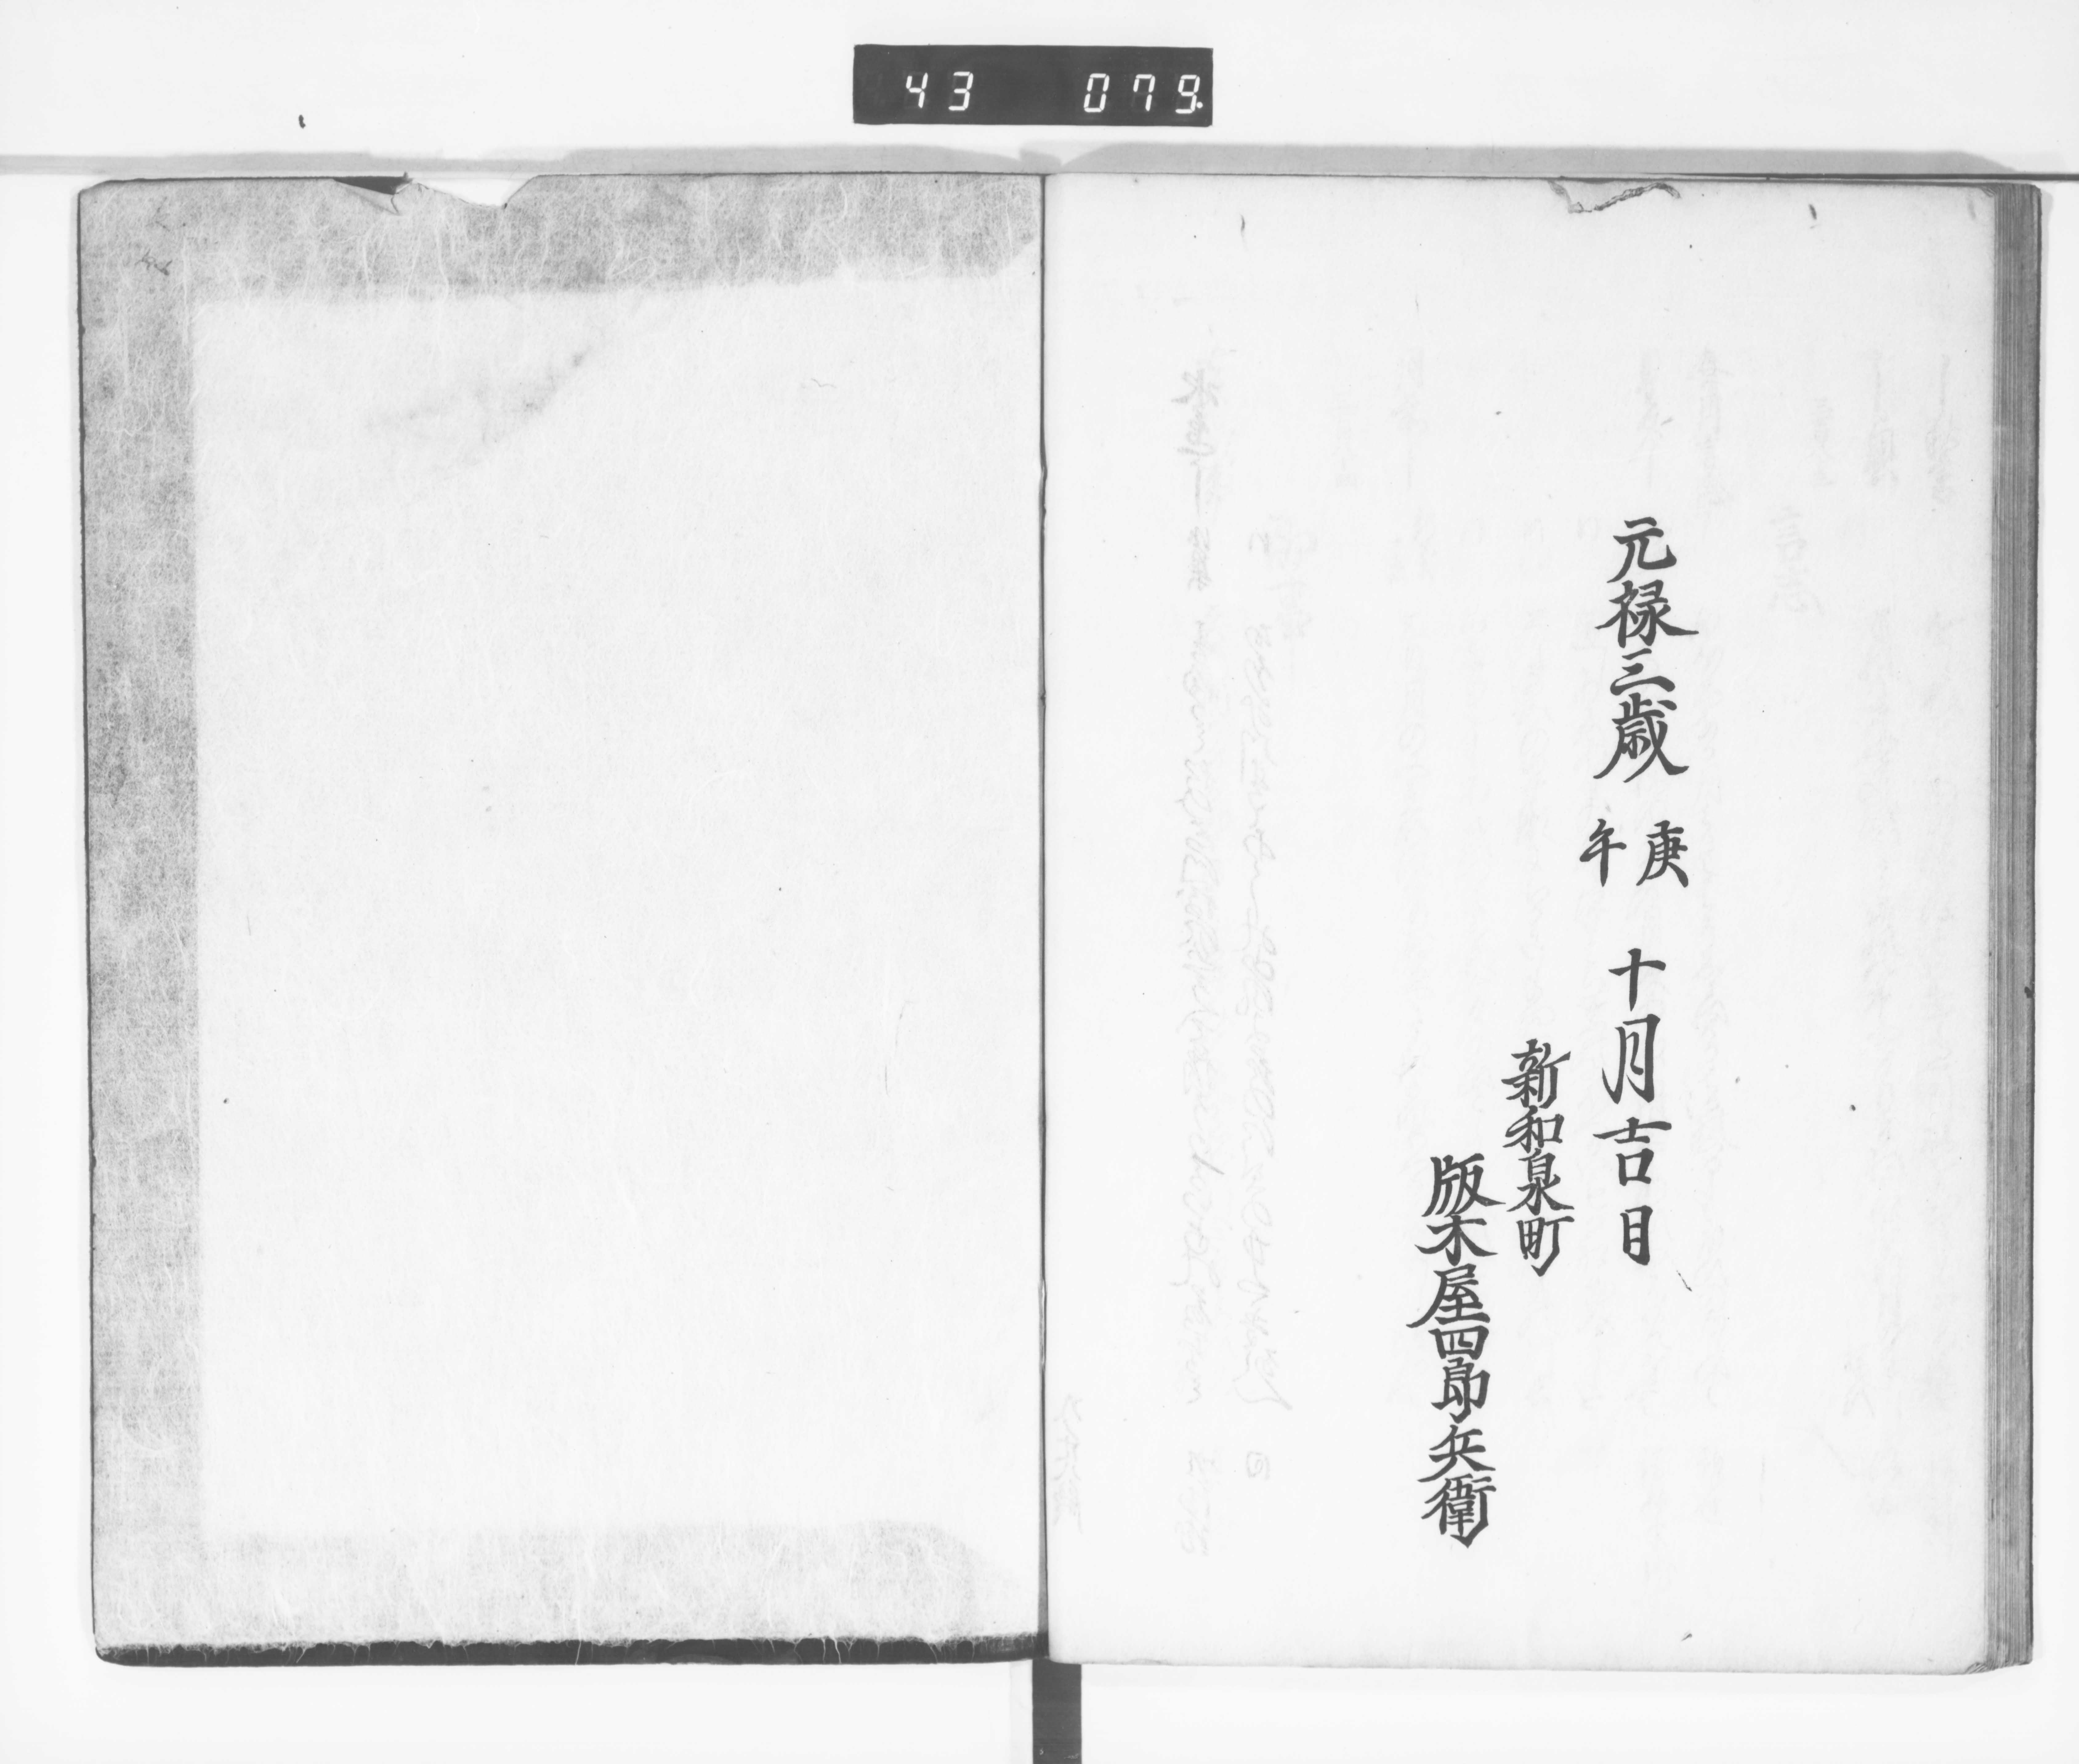 43 079
元禄三歳 庚午 十月吉日
新和泉町
版木屋四郎兵衛